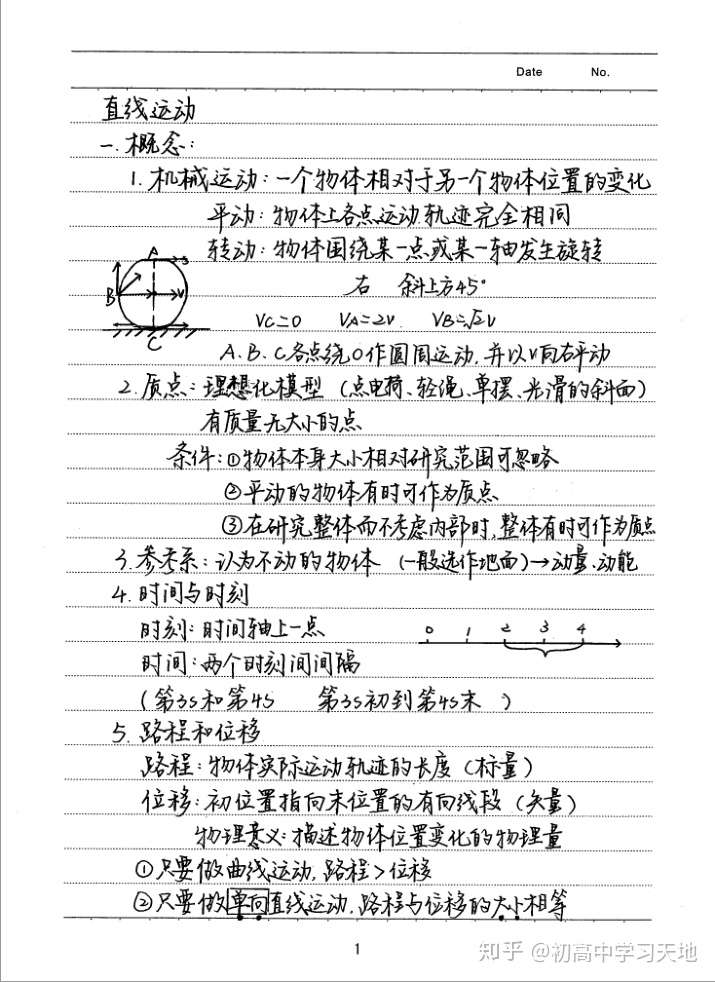 Date No.
直线运动
一. 概念:
1. 机械运动: 一个物体相对于另一个物体位置的变化
平动: 物体上各点运动轨迹完全相同
转动: 物体围绕某一点或某一轴发生旋转
右 斜上方45°
VC=0 VA=2V VB=√2V
A B V C
A. B. C各点绕O作圆周运动, 并以V向右平动
2. 质点: 理想化模型 (点电荷、轻绳、单摆、光滑的斜面)
有质量无大小的点
条件: ①物体本身大小相对研究范围可忽略
②平动的物体有时可作为质点
③在研究整体而不考虑内部时, 整体有时可作为质点
3. 参考系: 认为不动的物体 (一般选作地面)→动量、动能
4. 时间与时刻
时刻: 时间轴上一点
0 1 2 3 4
时间: 两个时刻间间隔
(第3S和第4S 第3S初到第4S末 )
5. 路程和位移
路程: 物体实际运动轨迹的长度 (标量)
位移: 初位置指向末位置的有向线段 (矢量)
物理意义: 描述物体位置变化的物理量
①只要做曲线运动, 路程>位移
②只要做单向直线运动, 路程与位移的大小相等
1
知乎 @初高中学习天地